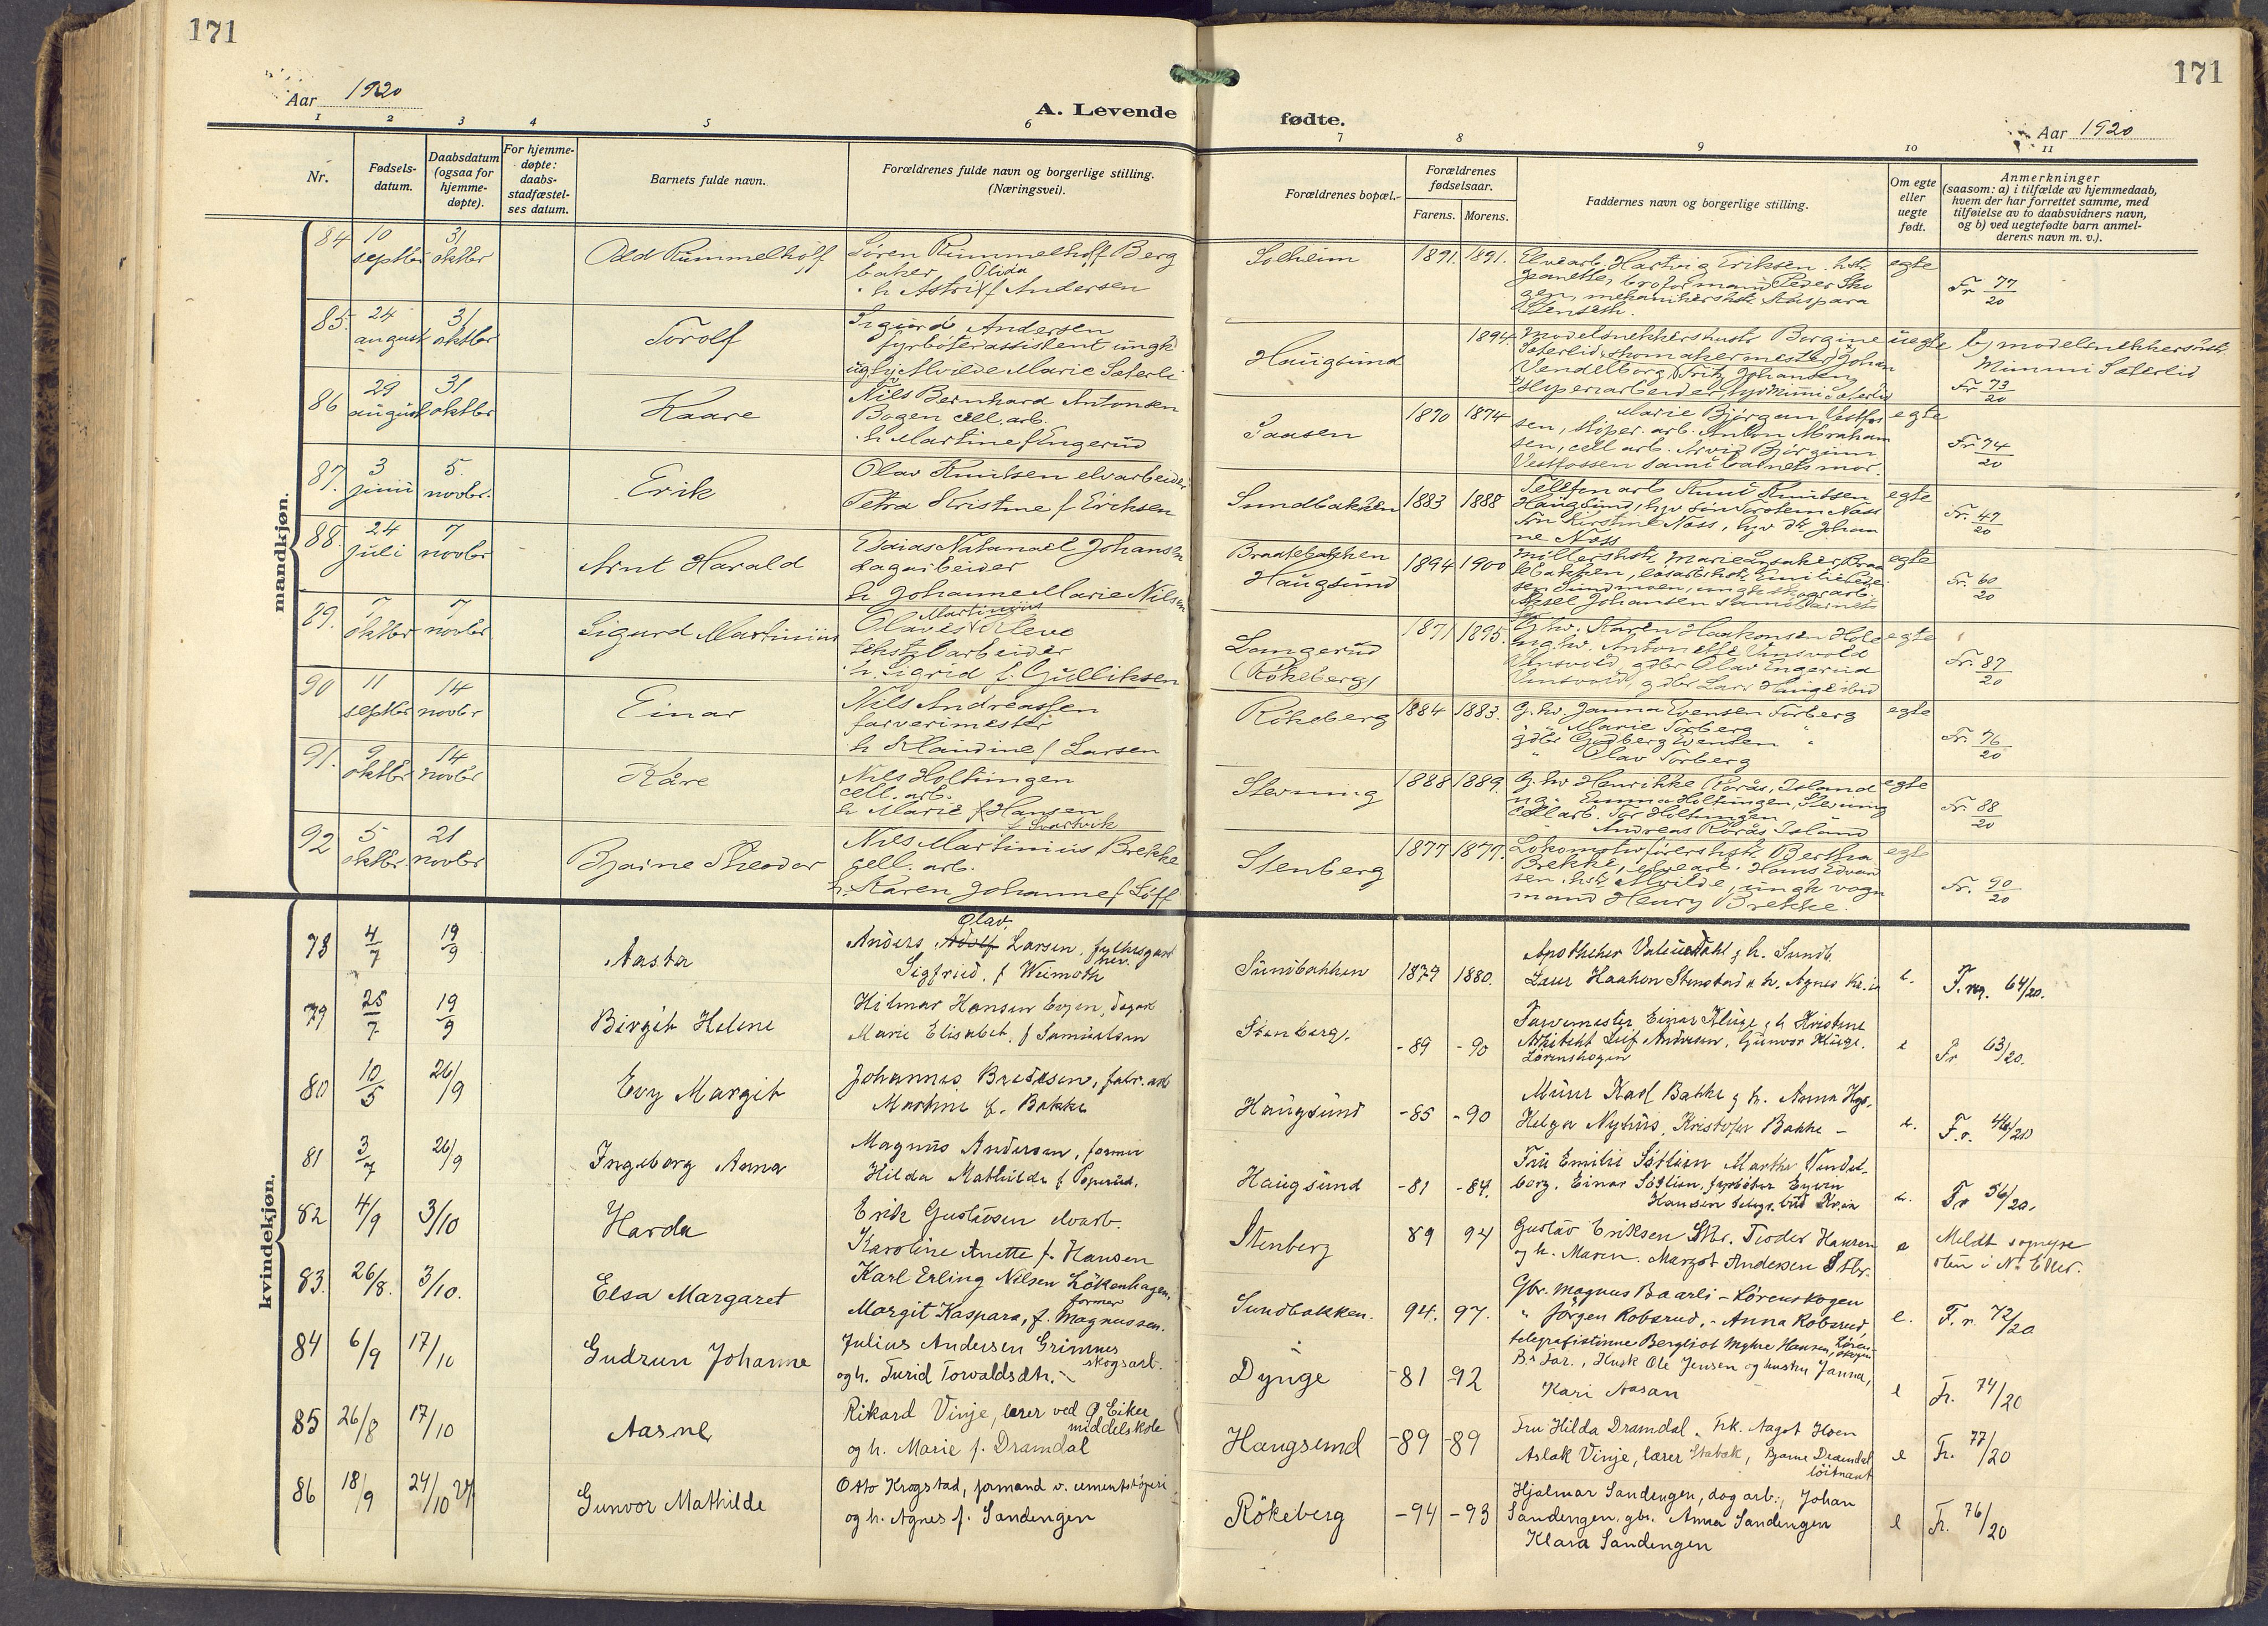 171
171
Aar 1920
A. Levende
fødte.
Aar 1920
1 2 3 4 5 6 7 8 9 10 11
Nr.
Fødsels-
datum.
Daabsdatum
(ogsaa for
hjemme-
døpte).
For hjemme-
døpte:
daabs-
stadfæstel-
ses datum.
Barnets fulde navn.
Forældrenes fulde navn og borgerlige stilling.
(Næringsvei).
Forældrenes bopæl.
Forældrenes
fødselsaar.
Farens. Morens.
Faddernes navn og borgerlige stilling.
Om egte
eller
uegte
født.
Anmerkninger
(saasom: a) i tilfælde av hjemmedaab,
hvem der har forrettet samme, med
tilføielse av to daabsvidners navn,
og b) ved uegtefødte barn anmel-
derens navn m. v.).
mandkjøn.
84 10 septbr 31 oktbr
Odd Rummelhoff
Søren Rummelhoff Berg
baker Olida
h Astrid f Andersen
Solheim 1891. 1891.
Elvearb. Hartvig Eriksen. hstr
Jeanette, broformand Peder Sko
gen, mekanikershstr Kaspara
Stenseth.
egte
Fr 77/20
85. 24 august 31 oktbr
Torolf
Sigurd Andersen
fyrbøterassistent ungk
ug Alvilde Marie Sæterli
Haugsund 1894.
Modelsnekkershustr Borgine
Sæterlid, skomakermester Johan
Vendelborg, Fritz Johansen
sliperiarbeider, Mimmi Sæterlid
uegte
b) modelsnekkershustr.
Mimmi Sæterlid
Fr 73/20
86 29 august 31 oktbr
Kaare
Nils Bernhard Antonsen
Bogen cell. arb.
h Martine f Engerud
Aasen 1870 1874
Marie Bjørgan Vestfos
sen, sliper. arb. Anton Abraham
sen, cell arb. Arvid Bjørgum
Vestfossen samt barnets mor.
egte
Fr 74/20
87. 3 juni 5. novbr.
Erik
Olav Knutsen elvarbeider
Petra Kristine f Eriksen
Sundbakken 1883 1888
Telefonarb Knut Knutsen
Haugsund, Torstein Næss
Fru Kirstine Næss, Johan
ne Næss
egte
Fr. 47/20
88. 24 juli 7 novbr
Arnt Harald
Esaias Natanael Johansen
dagarbeider
h Johanne Marie Nilsen
Braatebakken
Haugsund 1894 1900
Møllershstr Marie Braa
tebakken, Emilie
Sundmoen, ungk skogarb.
Aksel Johansen samt barnets
far
egte
Fr. 60/20
89. 7 oktbr 7 novbr
Sigurd Martinius
Martinius
Olaves Kleve
tekstilarbeider
h. Sigrid f. Gulliksen
Langerud
(Røkeberg) 1871 1895.
G.hv. Karen Haakonsen Hole
ug.hv. Antonette Unsvold
Unsvold, gdbr Olav Engerud
Unsvold, gdbr Lars Hauge
egte
Fr. 87/20
90 11 septbr 14 novbr
Einar
Nils Andreassen
farverimester
h Klaudine f Larsen
Røkeberg 1884 1883.
G.hv. Janna Evensen Torberg
" Marie Torberg
gdbr Gudberg Evensen "
" Olav Torberg
egte
Fr. 76/20
91. 9 oktbr 14 novbr
Kåre
Nils Holtungen
cell. arb.
h Marie f Hansen
f Svartvik
Stevning 1888 1889.
G. hv Henrikke Rørås, Island
ug. Emma Holtungen, Stevning
Cell arb. Tor Holtungen
Andreas Rørås Island
egte
Fr. 88/20
92 5 oktbr 21 novbr
Bjarne Theodor
Nils Martinius Brekke
cell. arb.
h. Karen Johanne f Løff
Stenberg 1877 1879.
Lokomotivførershstr Bertha
Brekke, elvearb. Hans Edvard
sen, hstr Alvilde, ungk vogn
mand Henry Brekke.
egte
Fr. 90/20
kvindekjøn.
78 4/7 19/9
Aasta
Olav.
Anders Adolf Larsen, fylkesgart
ner.
Sigfrid. f Weimoth
Sundbakken 1879 1880.
Apotheker Dahl g h. Sundb.
Haakon Stenstad h. Agnes Kr.ia
e.
F.r. 64/20.
79 25/7 19/9
Birgit Helene
Hilmar Hansen Evjen, dagarb
Marie Elisabet. f Samuelsen
Stenberg. -89 -90
Farvemester Einar Kluge, h Kristine
Arkitekt Leif Andresen, Gunvor Kluge.
Lørenskogen
e
Fr 63/20.
80 10/5 26/9
Evy Margit
Johannes Bredesen, fabr. arb
Martine f. Bakke
Haugsund -85 -90
Murer Karl Bakke g h. Anna Hgs.
Helga Nyhus, Kristofer Bakke -
e.
F.r. 46/20
81 3/7 26/9
Ingeborg Anna
Magnus Andersen, former
Hilda Mathilde f Poperud.
Haugsund -81 -84.
Fru Emilie Søtlien Martha Vendel-
borg, Einar Søtlien, fyrbøter Eyvin
Hansen telegr. bud Kr.ia
e.
Fr 56/20.
82 4/9 3/10
Harda
Erik Gustavsen elvarb.
Karoline Anette f. Hansen
Stenberg 89 94
Gustav Eriksen Stbr. Teodor Hansen
og h. Maren. Margot Andersen Stbr.
e
Meldt sogneprestn i N. Eker.
83. 26/8. 3/10.
Elsa Margaret
Karl Erling Nilsen Løkenhagen,
former
Margit Kaspara, f. Magnussen.
Sundbakken. 94. 97.
Gbr. Magnus Baarli - Lørenskogen
" Jørgen Robsrud, - Anna Robsrud,
telegrafistinne Bergliot Myhre Hansen, Lørenskogen
e.
F. r. 72/20
84 6/9 17/10
Gudrun Johanne
Julius Andersen Grimnes
skogsarb.
og h. Turid Torvaldsdtr.
Dynge -81 -92
B.s far., Husk Ole Jensen og hustru Janna,
Kari Aasan
e
Fr. 74/20
85 26/8 17/10
Aasne
Rikard Vinje, lærer ved Ø Eiker
middelskole
og h. Marie f. Dramdal
Haugsund -89 -89
Fru Hilda Dramdal. Frk. Aagot Hoen
Aslak Vinje, lærer Stabæk, Bjarne Dramdal
løitnant
e
Fr. 77/20
86 18/9 24/10
Gunvor Mathilde
Otto Krogstad, formand v. cementstøperi
og h. Agnes f. Sandengen
Rökeberg -94 -93
Hjalmar Sandengen, dag arb., Johan
Sandengen, gbr. Anna Sandengen
Klara Sandengen
e
Fr. 76/20